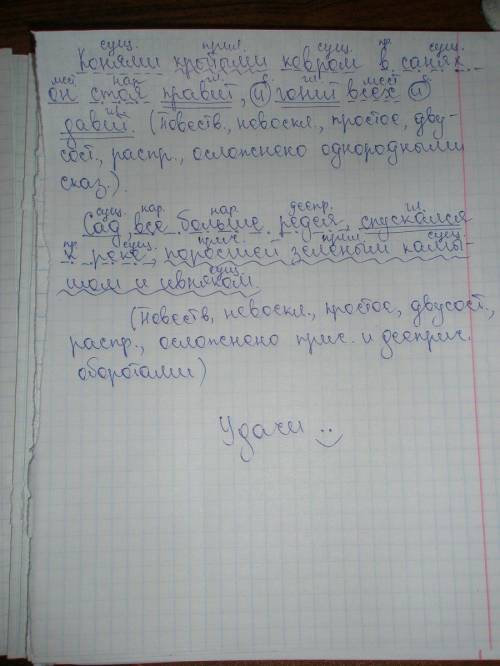 сущ. прил. сущ. пр. сущ.
Конями крытыми ковром в санях
мест. нар. гл. гл. мест.
он стоя правит, и гонит всех и
гл.
давит. (Повеств, невоскл., простое, дву-
сост., распр., осложнено однородными
сказ.).
сущ. нар. нар. деепр. гл.
Сад, все больше редея, спускался
пр. сущ. прич. прил. сущ.
к реке, поросшей зеленым камы-
сущ.
шом и ивняком.
(Повеств, невоскл, простое, двусост.,
распр., осложнено прич. и дееприч.
оборотами)
Удачи